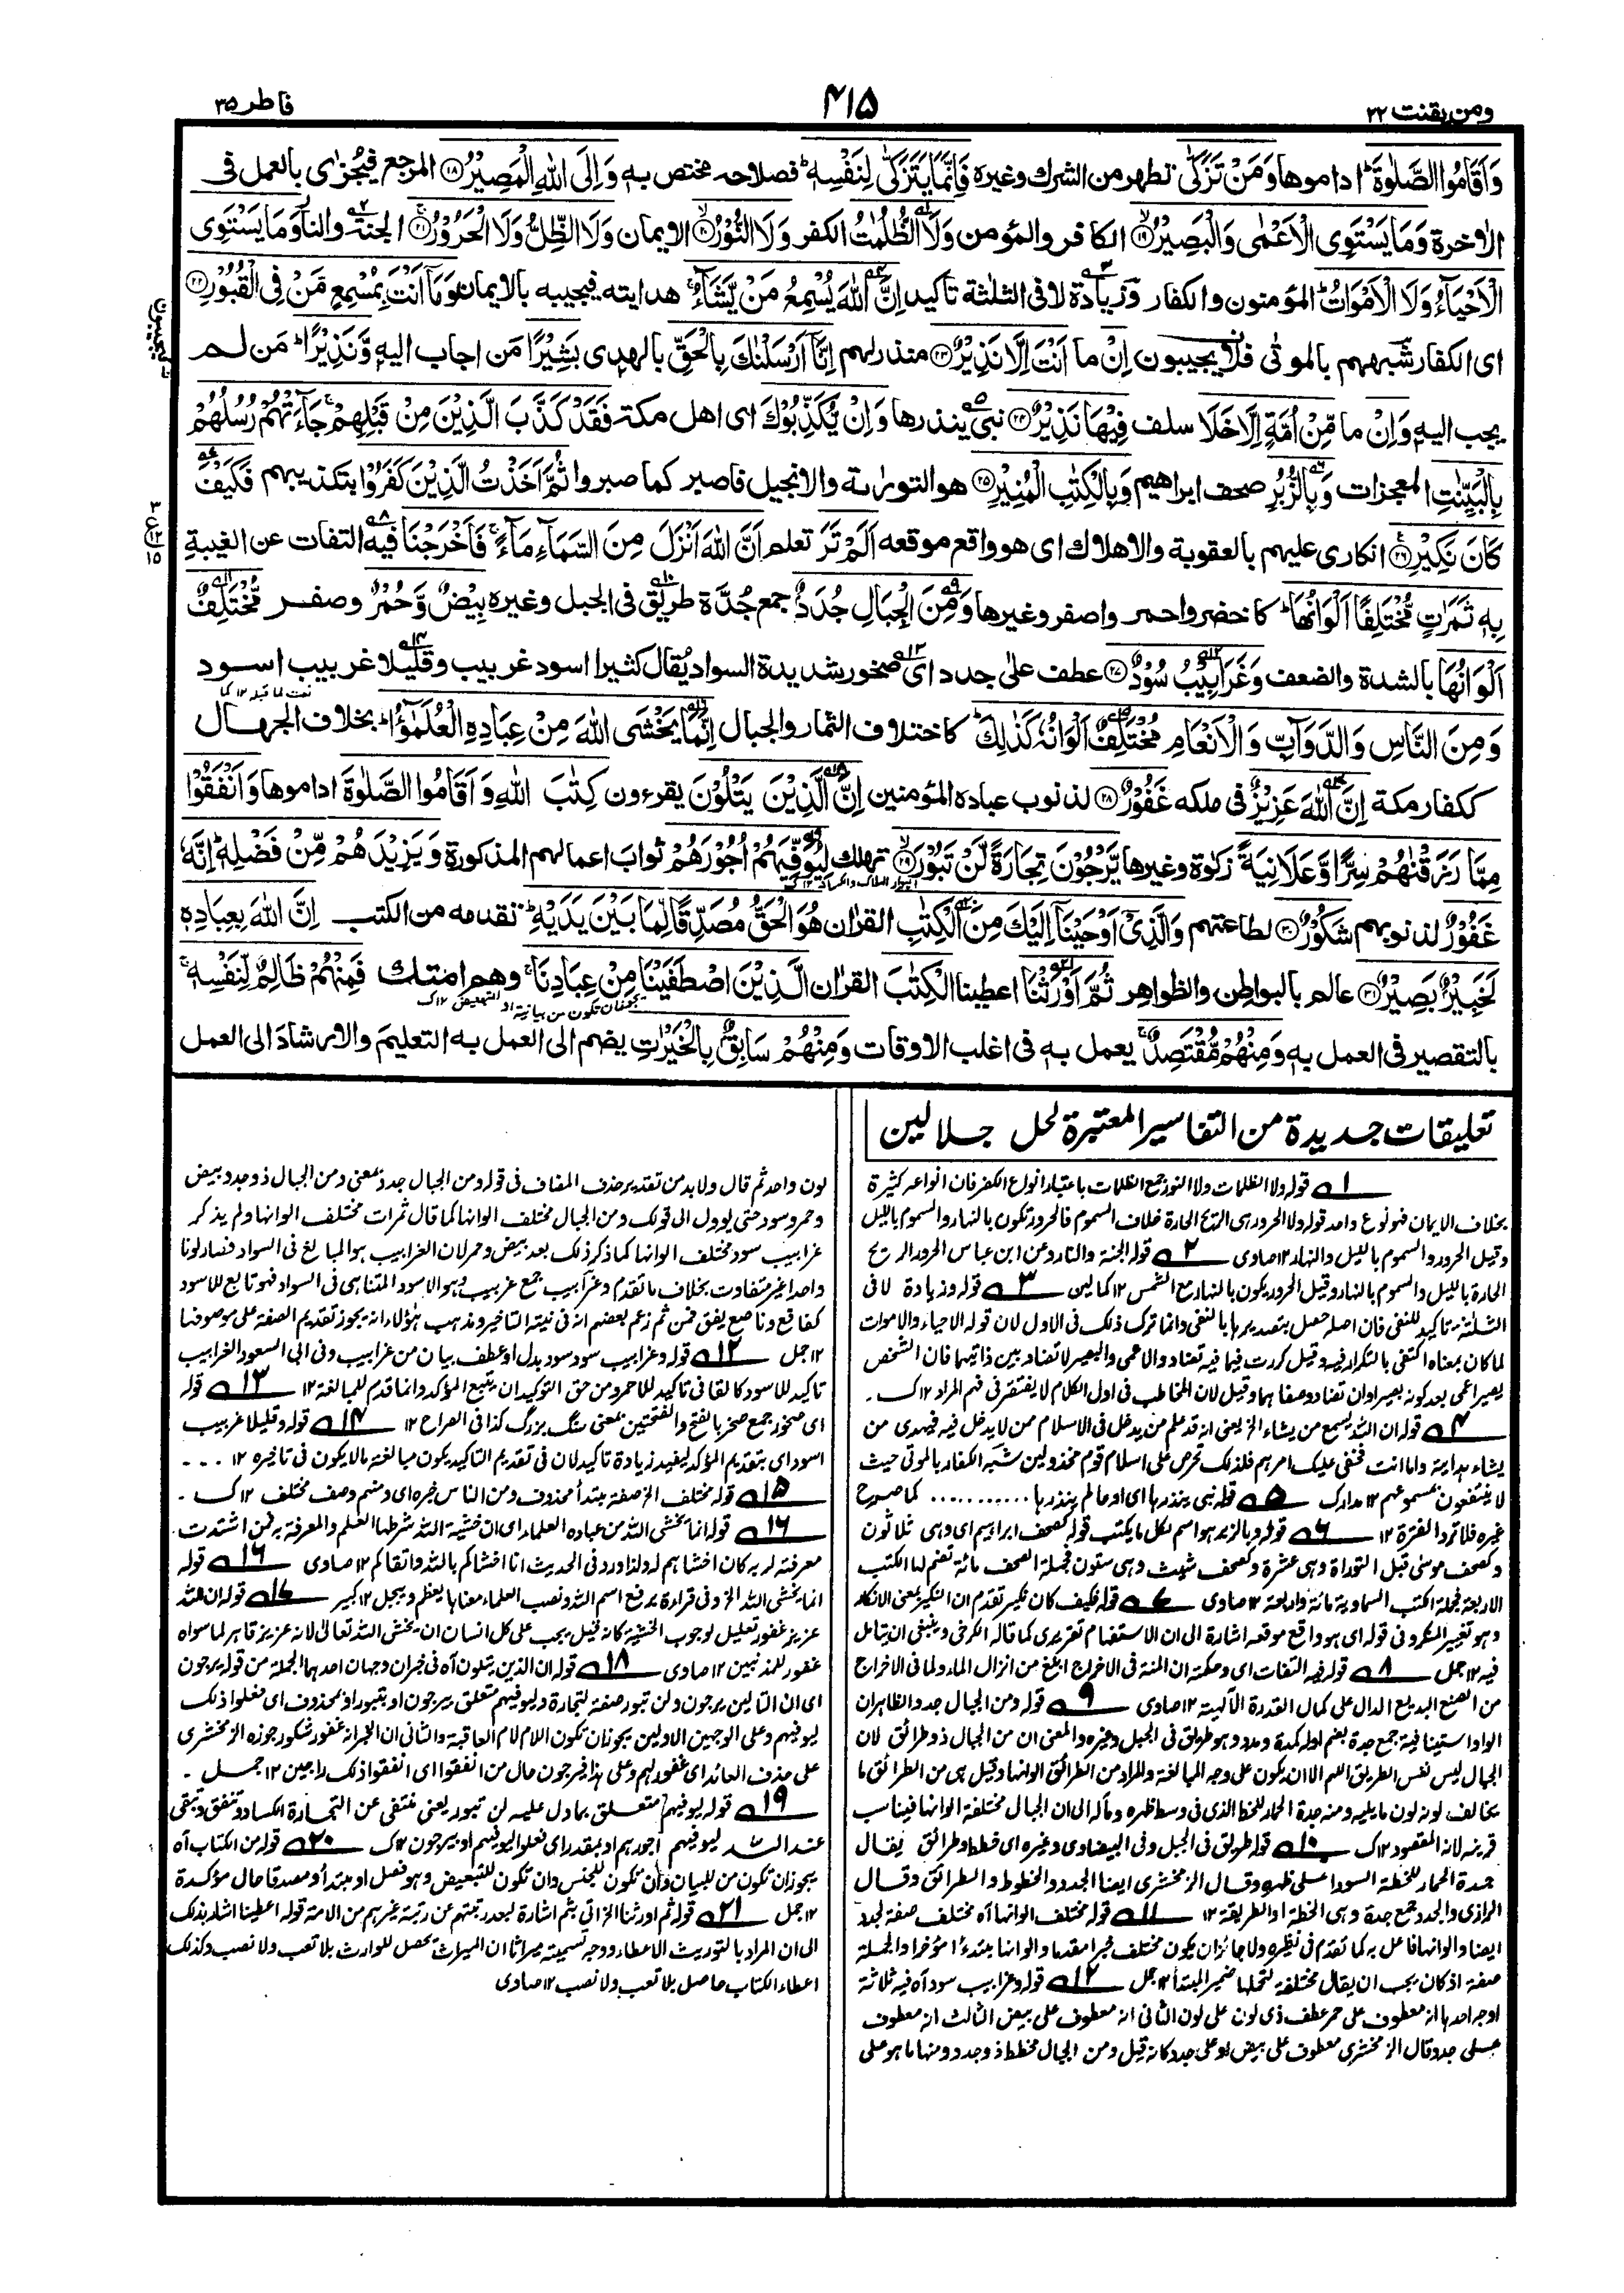 ومن يقنت ٢٢
٤١٥
فاطر ٣٥
وَاَقَامُوا الصَّلٰوةَ ؕ اداموها وَمَنْ تَزَكّٰى تطهر من الشرك وغيره فَاِنَّمَا يَتَزَكّٰى لِنَفْسِهٖ ؕ فصلاحه مختص به وَاِلَى اللّٰهِ الْمَصِيْرُ ﴿١٨﴾ المرجع فيجزٰى بالعمل فى
الاٰخرة وَمَا يَسْتَوِى الْاَعْمٰى وَالْبَصِيْرُ ﴿١٩﴾ الكافر والمؤمن وَلَا الظُّلُمٰتُ الكفر وَلَا النُّوْرُ ﴿٢٠﴾ الايمان وَلَا الظِّلُّ وَلَا الْحَرُوْرُ ﴿٢١﴾ الجنة والنار وَمَا يَسْتَوِى
الْاَحْيَآءُ وَلَا الْاَمْوَاتُ ؕ المؤمنون والكفار وزيادة لا فى الثلٰثة تاكيد اِنَّ اللّٰهَ يُسْمِعُ مَنْ يَّشَآءُ ۚ هدايته فيجيبه بالايمان وَمَآ اَنْتَ بِمُسْمِعٍ مَّنْ فِى الْقُبُوْرِ ﴿٢٢﴾
اى الكفار شبههم بالموتٰى فلا يجيبون اِنْ ما اَنْتَ اِلَّا نَذِيْرٌ ﴿٢٣﴾ منذر لهم اِنَّآ اَرْسَلْنٰكَ بِالْحَقِّ بالهدى بَشِيْرًا من اجاب اليه وَّنَذِيْرًا ؕ من لم
يجب اليه وَاِنْ ما مِّنْ اُمَّةٍ اِلَّا خَلَا سلف فِيْهَا نَذِيْرٌ ﴿٢٤﴾ نبى ينذرها وَاِنْ يُّكَذِّبُوْكَ اى اهل مكة فَقَدْ كَذَّبَ الَّذِيْنَ مِنْ قَبْلِهِمْ ۚ جَآءَتْهُمْ رُسُلُهُمْ
بِالْبَيِّنٰتِ المعجزات وَبِالزُّبُرِ صحف ابراهيم وَبِالْكِتٰبِ الْمُنِيْرِ ﴿٢٥﴾ هو التورٰىة والانجيل فاصبر كما صبروا ثُمَّ اَخَذْتُ الَّذِيْنَ كَفَرُوْا بتكذيبهم فَكَيْفَ
كَانَ نَكِيْرِ ﴿٢٦﴾ انكارى عليهم بالعقوبة والاهلاك اى هو واقع موقعه اَلَمْ تَرَ تعلم اَنَّ اللّٰهَ اَنْزَلَ مِنَ السَّمَآءِ مَآءً ۚ فَاَخْرَجْنَا فيه التفات عن الغيبة
بِهٖ ثَمَرٰتٍ مُّخْتَلِفًا اَلْوَانُهَا ؕ كاخضر واحمر واصفر وغيرها وَمِنَ الْجِبَالِ جُدَدٌۢ جمع جُدَّة طريق فى الجبل وغيره بِيْضٌ وَّحُمْرٌ وصفر مُّخْتَلِفٌ
اَلْوَانُهَا بالشدة والضعف وَغَرَابِيْبُ سُوْدٌ ﴿٢٧﴾ عطف على جدد اى صخور شديدة السواد يُقال كثيرا اسود غربيب وقليلا غربيب اسود
وَمِنَ النَّاسِ وَالدَّوَآبِّ وَالْاَنْعَامِ مُخْتَلِفٌ اَلْوَانُهٗ كَذٰلِكَ ؕ كاختلاف الثمار والجبال اِنَّمَا يَخْشَى اللّٰهَ مِنْ عِبَادِهِ الْعُلَمٰٓؤُا ؕ بخلاف الجهال
ككفار مكة اِنَّ اللّٰهَ عَزِيْزٌ فى ملكه غَفُوْرٌ ﴿٢٨﴾ لذنوب عباده المؤمنين اِنَّ الَّذِيْنَ يَتْلُوْنَ يقرءون كِتٰبَ اللّٰهِ وَاَقَامُوا الصَّلٰوةَ اداموها وَاَنْفَقُوْا
مِمَّا رَزَقْنٰهُمْ سِرًّا وَّعَلَانِيَةً زكٰوة وغيرها يَّرْجُوْنَ تِجَارَةً لَّنْ تَبُوْرَ ﴿٢٩﴾ تهلك لِيُوَفِّيَهُمْ اُجُوْرَهُمْ ثواب اعمالهم المذكورة وَيَزِيْدَهُمْ مِّنْ فَضْلِهٖ ؕ اِنَّهٗ
غَفُوْرٌ لذنوبهم شَكُوْرٌ ﴿٣٠﴾ لطاعتهم وَالَّذِىْٓ اَوْحَيْنَآ اِلَيْكَ مِنَ الْكِتٰبِ القراٰن هُوَ الْحَقُّ مُصَدِّقًا لِّمَا بَيْنَ يَدَيْهِ ؕ تقدمه من الكتب اِنَّ اللّٰهَ بِعِبَادِهٖ
لَخَبِيْرٌۢ بَصِيْرٌ ﴿٣١﴾ عالم بالبواطن والظواهر ثُمَّ اَوْرَثْنَا اعطينا الْكِتٰبَ القراٰن الَّذِيْنَ اصْطَفَيْنَا مِنْ عِبَادِنَا ۚ وهم امتك فَمِنْهُمْ ظَالِمٌ لِّنَفْسِهٖ ۚ
بالتقصير فى العمل به وَمِنْهُمْ مُّقْتَصِدٌ ۚ يعمل به فى اغلب الاوقات وَمِنْهُمْ سَابِقٌۢ بِالْخَيْرٰتِ يضم الى العمل به التعليم والارشاد الى العمل
تعليقات جديدة من التفاسير المعتبرة لحل جلالين
١ قوله ولا الظلمات ولا النور جمع الظلمات باعتبار انواع الكفر فان انواعه كثيرة
بخلاف الايمان فهو نوع واحد قوله ولا الحرور هى الريح الحارة خلاف السموم فالحرور تكون بالنهار والسموم بالليل
وقيل الحرور والسموم بالليل والنهار ١٢ صاوى ٢ قوله الجنة والنار وعن ابن عباس الحرور الريح
الحارة بالليل والسموم بالنهار وقيل الحرور يكون بالنهار مع الشمس ١٢ كمالين ٣ قوله وزيادة لا فى
الثلثة تاكيد للنفى فان اصله حصل بتصديرها بالنفى وانما ترك ذلك فى الاول لان قوله الاحياء والاموات
لما كان بمعناه اكتفى بالتكرار فيه وقيل كررت فيما فيه تضاد والاعمى والبصير لا تضاد بين ذاتيهما فان الشخص
يصير اعمى بعد كونه بصيرا وان تضادا وصفاهما وقيل لان المخاطب فى اول الكلام لا يفتقر فى فهم المراد ١٢ ك
٤ قوله ان الله يسمع من يشاء الخ يعنى انه قد علم من يدخل فى الاسلام ممن لا يدخل فيه فيهدى من
يشاء هدايته واما انت فخفى عليك امرهم فلذلك تحرص على اسلام قوم مخذولين شبه الكفار بالموتى حيث
لا ينتفعون بمسموعهم ١٢ مدارك ٥ قوله نبى ينذرها اى او عالم ينذرها ........... كما صرح
غيره فلا ترد الفترة ١٢ ٦ قوله وبالزبر هو اسم لكل ما يكتب قوله كصحف ابراهيم اى وهى ثلاثون
وكصحف موسى قبل التوراة وهى عشرة وكصحف شيث وهى ستون فجملة الصحف مائة تضم لها الكتب
الاربعة فجملة الكتب السماوية مائة واربعة ١٢ صاوى ٧ قوله فكيف كان نكير تقدم ان النكير بمعنى الانكار
وهو تغيير المنكر وفى قوله اى هو واقع موقعه اشارة الى ان الاستفهام تقريرى كما قاله الكرخى وينبغى ان يتامل
فيه ١٢ جمل ٨ قوله فيه التفات اى وحكمته ان المنة فى الاخراج ابلغ من انزال الماء ولما فى الاخراج
من الصنع البديع الدال على كمال القدرة الالهية ١٢ صاوى ٩ قوله ومن الجبال جدد الظاهر ان
الواو استينافية جمع جدة بضم اوله كمدة ومدد وهو طريق فى الجبل وغيره والمعنى ان من الجبال ذو طرائق لان
الجبال ليس نفس الطريق اللهم الا ان يكون على وجه المبالغة والمراد من الطرائق الوانها وقيل هى من الطرائق ما
يخالف لونه لون ما يليه ومنه جدة الحمار للخط الذى فى وسط ظهره ومآله الى ان الجبال مختلفة الوانها فيناسب
قرينه لانه المقصود ١٢ ك ١٠ قوله طريق فى الجبل وفى البيضاوى وغيره اى خطط وطرائق يقال
جدة الحمار للخطة السوداء على ظهره وقال الزمخشرى ايضا الجدد والخطوط والطرائق وقال
الرازى والجدد جمع جدة وهى الخطة او الطريقة ١٢ ١١ قوله مختلف الوانها آه مختلف صفة لجدد
ايضا والوانها فاعل به كما تقدم فى نظيره ولا جائز ان يكون مختلف خبرا مقدما والوانها مبتدءا مؤخرا والجملة
صفة اذ كان يجب ان يقال مختلفة لتحملها ضمير المبتدأ ١٢ جمل ١٢ قوله وغرابيب سود آه فيه ثلاثة
اوجه احدها انه معطوف على حمر عطف ذى لون على لون الثانى انه معطوف على بيض الثالث انه معطوف
على جدد قال الزمخشرى معطوف على بيض او على جدد كانه قيل ومن الجبال مخطط ذو جدد ومنها ما هو على
لون واحد ثم قال ولا بد من تقدير حذف المضاف فى قوله ومن الجبال جدد بمعنى ومن الجبال ذو جدد بيض
وحمر وسود حتى يؤول الى قولك ومن الجبال مختلف الوانها كما قال ثمرات مختلف الوانها ولم يذكر
غرابيب سود مختلف الوانها كما ذكر ذلك بعد بيض وحمر لان الغرابيب هو المبالغ فى السواد فصار لونا
واحدا غير متفاوت بخلاف ما تقدم وغرابيب جمع غربيب وهو الاسود المتناهى فى السواد فهو تابع للاسود
كفاقع وناصع يقق فمن ثم زعم بعضهم انه فى نية التاخير ومذهب هؤلاء انه يجوز تقديم الصفة على موصوفها
١٢ جمل ١٢ قوله وغرابيب سود سود بدل او عطف بيان من غرابيب وفى ابى السعود الغرابيب
تاكيد للاسود كالقانى تاكيد للاحمر ومن حق التوكيد ان يتبع المؤكد وانما قدم للمبالغة ١٢ ١٣ قوله
اى صخور جمع صخر بالفتح والفتحتين بمعنى سنگ بزرگ كذا فى الصراح ١٢ ١٤ قوله وقليلا غربيب
اسود اى بتقديم المؤكد ليفيد زيادة تاكيد لان فى تقديم التاكيد يكون مبالغة ما لا يكون فى تاخيره ١٢ ...
١٥ قوله مختلف الخ صفته مبتدأ محذوف ومن الناس خبره اى ومنهم وصف مختلف ١٢ ك
١٦ قوله انما يخشى الله من عباده العلماء اى ان خشية الله شرطها العلم والمعرفة به فمن اشتدت
معرفته لربه كان اخشاهم له ولذا ورد فى الحديث انا اخشاكم بالله واتقاكم ١٢ صاوى ١٦ قوله
انما يخشى الله الخ وفى قراءة برفع اسم الله ونصب العلماء معناها يعظم ويبجل ١٢ كبير ١٧ قوله ان الله
عزيز غفور تعليل لوجوب الخشية كانه قيل يجب على كل انسان ان يخشى الله تعالى لانه عزيز قاهر لما سواه
غفور للمذنبين ١٢ صاوى ١٨ قوله ان الذين يتلون آه فى خبران وجهان احدهما الجملة من قوله يرجون
اى ان التالين يرجون ولن تبور صفة لتجارة وليوفيهم متعلق بيرجون او بتبور او بمحذوف اى فعلوا ذلك
ليوفيهم وعلى الوجهين الاولين يجوز ان تكون اللام لام العاقبة والثانى ان الخبر انه غفور شكور جوزه الزمخشرى
على حذف العائد اى غفور لهم وعلى هذا فيرجون حال من انفقوا اى انفقوا ذلك راجين ١٢ جمل
١٩ قوله ليوفيهم متعلق بما دل عليه لن تبور يعنى تنتفى عن التجارة الكساد وتنفق وتبقى
عند الله ليوفيهم اجورهم او بمقدر اى فعلوا ليوفيهم او بيرجون ١٢ ك ٢٠ قوله من الكتاب آه
يجوز ان تكون من للبيان وان تكون للجنس وان تكون للتبعيض وهو فصل او مبتدأ ومصدقا حال مؤكدة
١٢ جمل ٢١ قوله ثم اورثنا الخ اتى بثم اشارة لبعد رتبتهم عن رتبة غيرهم من الامة قوله اعطينا اشار بذلك
الى ان المراد بالتوريث الاعطاء ووجه تسميته ميراثا ان الميراث يحصل للوارث بلا تعب ولا نصب وكذلك
اعطاء الكتاب حاصل بلا تعب ولا نصب ١٢ صاوى